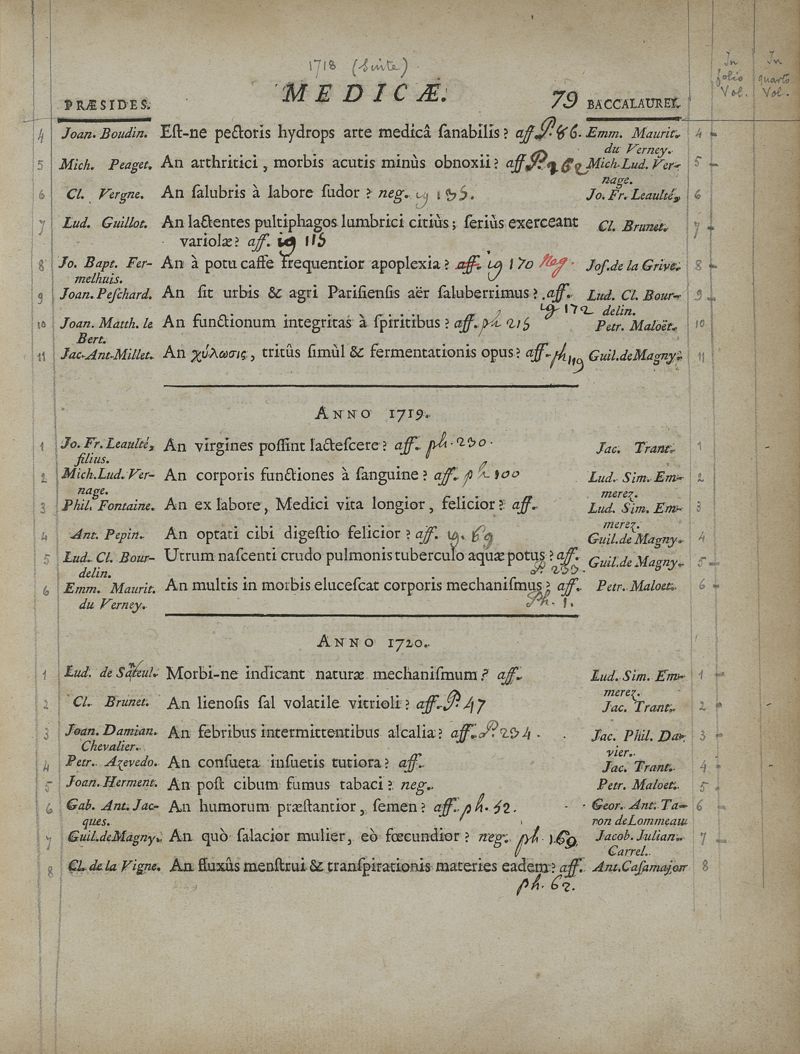 1718 (Suite)
In folio Vol. In quarto Vol.
PRÆSIDES. MEDICÆ. 79 BACCALAUREI.
4 Joan. Boudin. Eſt-ne pectoris hydrops arte medicâ ſanabilis? aff. P. 86. Emm. Maurit. 4
du Verney.
5 Mich. Peaget. An arthritici, morbis acutis minùs obnoxii? aff. Mich-Lud. Ver- 5
nage.
6 Cl. Vergne. An ſalubris à labore ſudor? neg. Jo. Fr. Leaulté, 6
7 Lud. Guillot. An lactentes pultiphagos lumbrici citiùs; ſeriùs exerceant Cl. Brunet. 7
variolæ? aff. 115
8 Jo. Bapt. Fer- An à potu caffe frequentior apoplexia? aff. 170 Neg. Joſ. de la Grive. 8
melhuis.
9 Joan. Peſchard. An ſit urbis & agri Pariſienſis aër ſaluberrimus? aff. Lud. Cl. Bour- 9
172 delin.
10 Joan. Matth. le An functionum integritas à ſpiritibus? aff. ph 215 Petr. Maloët. 10
Bert.
11 Jac-Ant-Millet. An χύλωσις, tritûs ſimùl & fermentationis opus? aff. ph Guil. de Magny. 11
ANNO 1719.
1 Jo. Fr. Leaulté, An virgines poſſint lacteſcere? aff. ph. 230. Jac. Trant. 1
filius.
2 Mich. Lud. Ver- An corporis functiones à ſanguine? aff. ph 100 Lud. Sim. Em- 2
nage. merez.
3 Phil. Fontaine. An ex labore, Medici vita longior, felicior? aff. Lud. Sim. Em- 3
merez.
4 Ant. Pepin. An optati cibi digeſtio felicior? aff. 69 Guil. de Magny. 4
5 Lud. Cl. Bour- Utrum naſcenti crudo pulmonis tuberculo aquæ potus? aff. Guil. de Magny. 5
delin.
6 Emm. Maurit. An multis in morbis eluceſcat corporis mechaniſmus? aff. Petr. Maloet. 6
du Verney. Ph. 1.
ANNO 1720.
1 Lud. de Santeul. Morbi-ne indicant naturæ mechaniſmum? aff. Lud. Sim. Em- 1
merez.
2 Cl. Brunet. An lienoſis ſal volatile vitrioli? aff. P. 47 Jac. Trant. 2
3 Joan. Damian. An febribus intermittentibus alcalia? aff. P. 234. Jac. Phil. Da- 3
Chevalier. vier.
4 Petr. Azevedo. An conſueta inſuetis tutiora? aff. Jac. Trant. 4
5 Joan. Herment. An poſt cibum fumus tabaci? neg. Petr. Maloet. 5
6 Gab. Ant. Jac- An humorum præſtantior, ſemen? aff. ph. 52. Geor. Ant. Ta- 6
ques. ron de Lommeau
7 Guil. de Magny. An quò ſalacior mulier, eò fœcundior? neg. ph. 169 Jacob. Julian. 7
Carrel.
8 Cl. de la Vigne. An fluxûs menſtrui & tranſpirationis materies eadem? aff. Ant. Caſamajor 8
ph. 62.